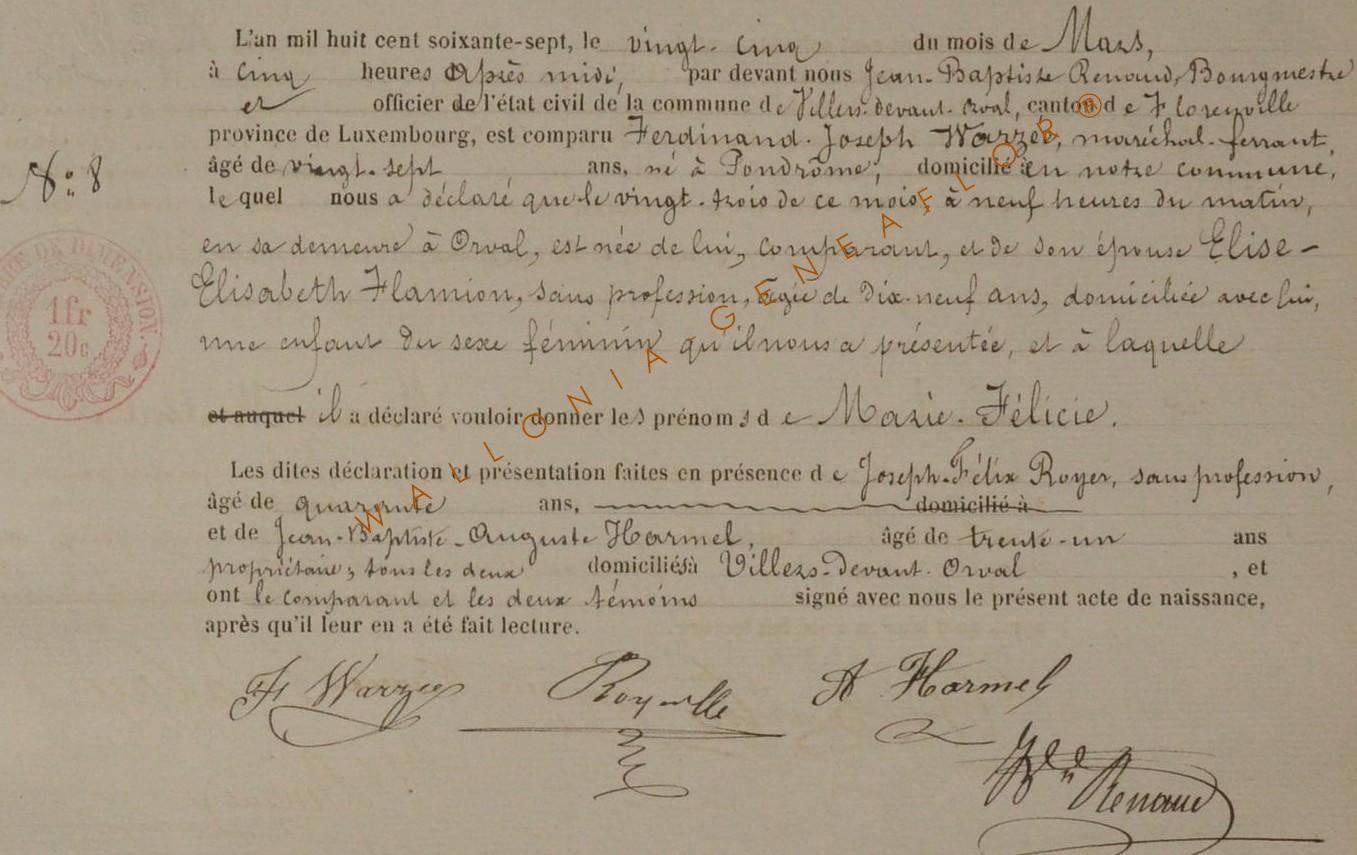 L'an mil huit cent soixante-sept, le vingt-cinq du mois de Mars,
à cinq heures après midi, par devant nous Jean-Baptiste Renaud, Bourgmestre
et officier de l'état civil de la commune de Villers-devant-Orval, canton de Florenville
province de Luxembourg, est comparu Ferdinand-Joseph Warzée, maréchal-ferrant,
N° 8
âgé de vingt-sept ans, né à Pondrôme, domicilié en notre commune,
lequel nous a déclaré que le vingt-trois de ce mois, à neuf heures du matin,
en sa demeure à Orval, est née de lui, comparant, et de son épouse Elise-
Elisabeth Flamion, sans profession, âgée de dix-neuf ans, domiciliée avec lui,
une enfant du sexe féminin qu'il nous a présentée, et à laquelle
TIMBRE DE DIMENSION
1fr
20c
et auquel il a déclaré vouloir donner les prénoms de Marie-Félicie.
Les dites déclaration et présentation faites en présence de Joseph-Félix Royer, sans profession,
âgé de quarante ans, domicilié à
et de Jean-Baptiste-Auguste Harmel, âgé de trente-un ans
propriétaire, tous les deux domiciliés à Villers-devant-Orval, et
ont le comparant et les deux témoins signé avec nous le présent acte de naissance,
après qu'il leur en a été fait lecture.
Warzée
A Harmel
Renaud
WALLONIA GENEAFLOR ®